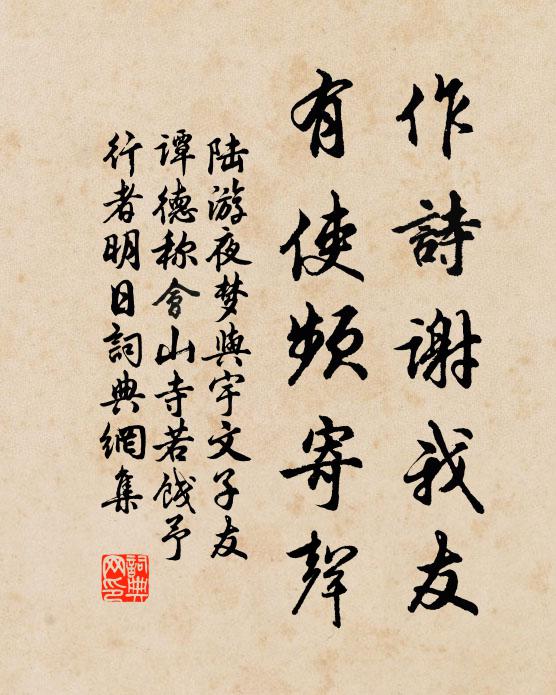 作詩謝我友
有使頻寄聲
陆游夜梦與宇文子友
譚德称會山寺若餞予
行者明日詞典網集
詞典
网印